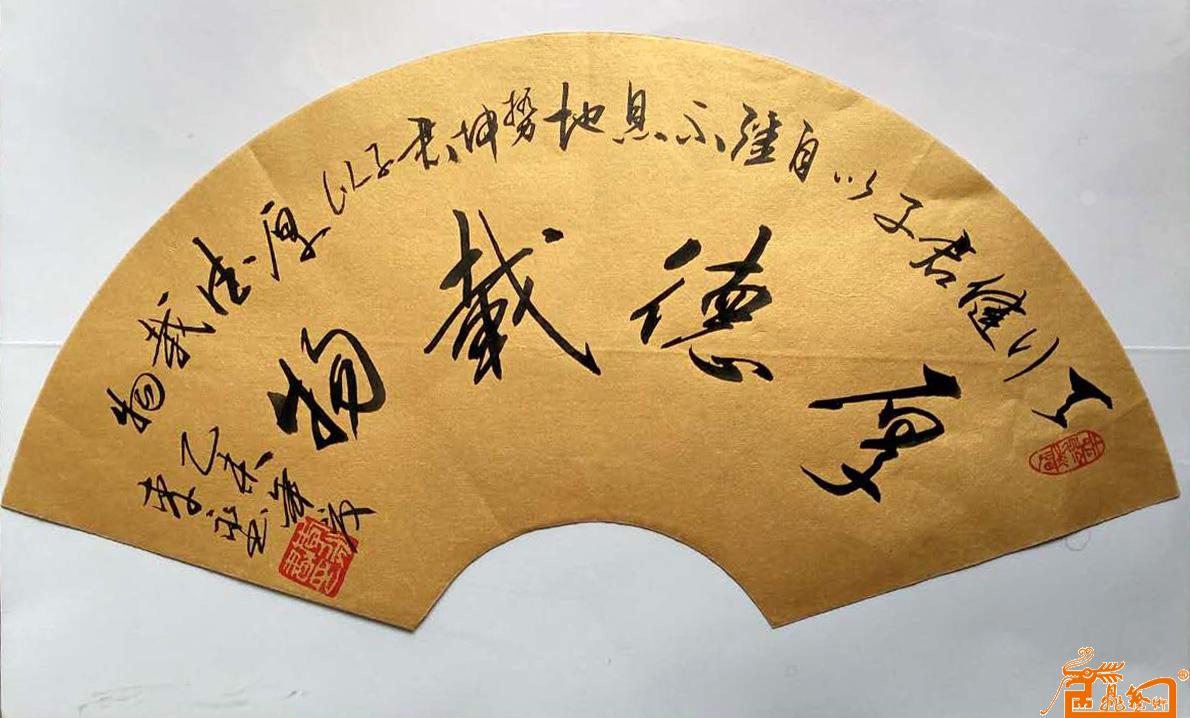 天行健君子以自強不息地势坤君子以厚德载物
厚德載物
乙未